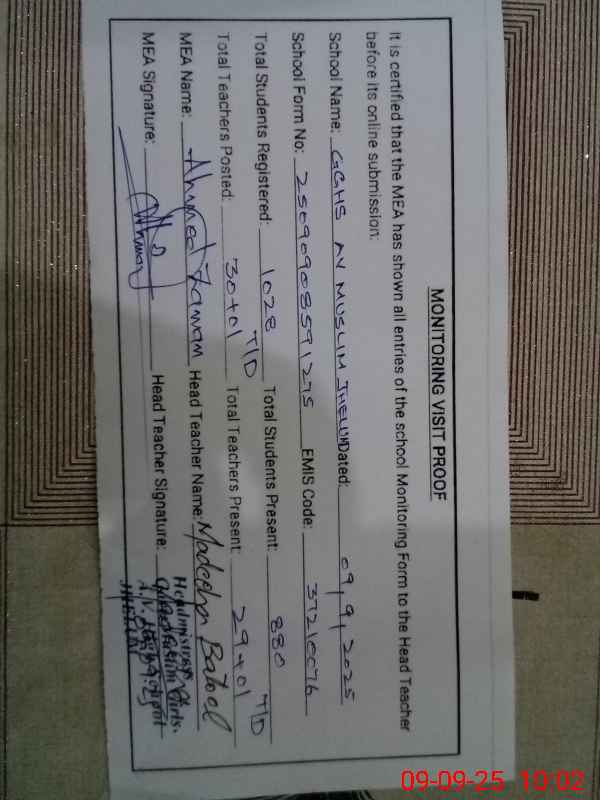 MONITORING VISIT PROOF
It is certified that the MEA has shown all entries of the school Monitoring Form to the Head Teacher
before its online submission:
School Name: GGHS AV MUSLIM JHELUM Dated: 09/9/2025
School Form No: 25090908591275 EMIS Code: 37210076
Total Students Registered: 1028 Total Students Present: 880
Total Teachers Posted: 30+01 T/D Total Teachers Present: 29+01 T/D
MEA Name: Ahmed Zaman Head Teacher Name: Madeeha Batool
MEA Signature: Head Teacher Signature:
Headmistress
Girls.
A.V.
JHELUM
09-09-25 10:02